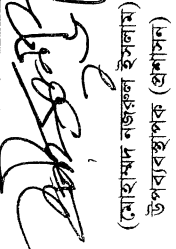 (মোহাম্মদ নজরুল ইসলাম)
উপব্যবস্থাপক (প্রশাসন)